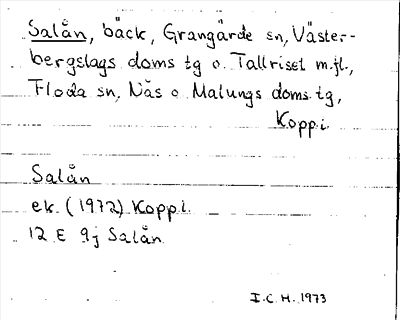 Salån, bäck, Grangärde sn, Väster-
bergslags doms tg o. Tallriset m.fl.,
Floda sn, Nås o Malungs doms. tg,
Kopp.i.
Salån
ek. (1972) Kopp.l.
12 E 9j Salån
I.C.H. 1973